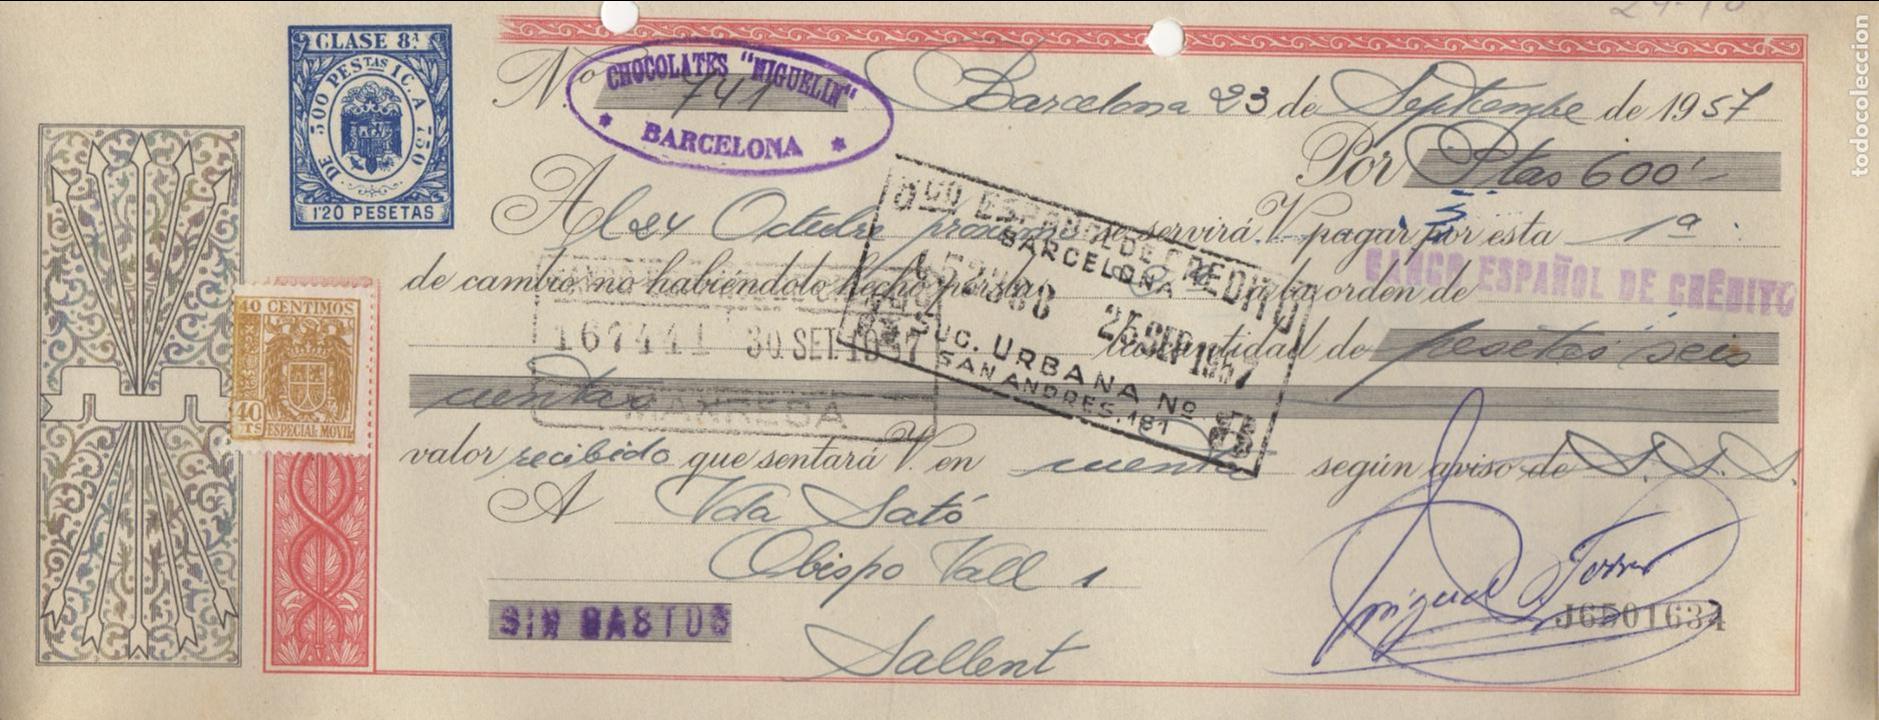 24-10
CLASE 8ª
DE 300 PESTAS I C. A 750
1'20 PESETAS
CHOCOLATES "MIGUELIN"
* BARCELONA *
No 741 Barcelona 23 de Septiembre de 1957
Por Ptas 600'-
Al 24 Octubre próximo se servirá V. pagar por esta 1ª
de cambio, no habiéndolo hecho por la 2ª a la orden de BANCO ESPAÑOL DE CRÉDITO
la cantidad de pesetas seis
cientas
valor recibido que sentará V. en cuenta según aviso de S.S.S.
A Vda Sató
Obispo Vall 1
Sallent
SIN GASTOS
Miguel Ferrer
J6501634
40 CENTIMOS
40 CTS
ESPECIAL MOVIL
167441 30 SET. 1957
MANRESA
BCO ESPAÑOL DE CREDITO
BARCELONA
25 SEP 1957
SUC. URBANA Nº
SAN ANDRES, 181
todocoleccion